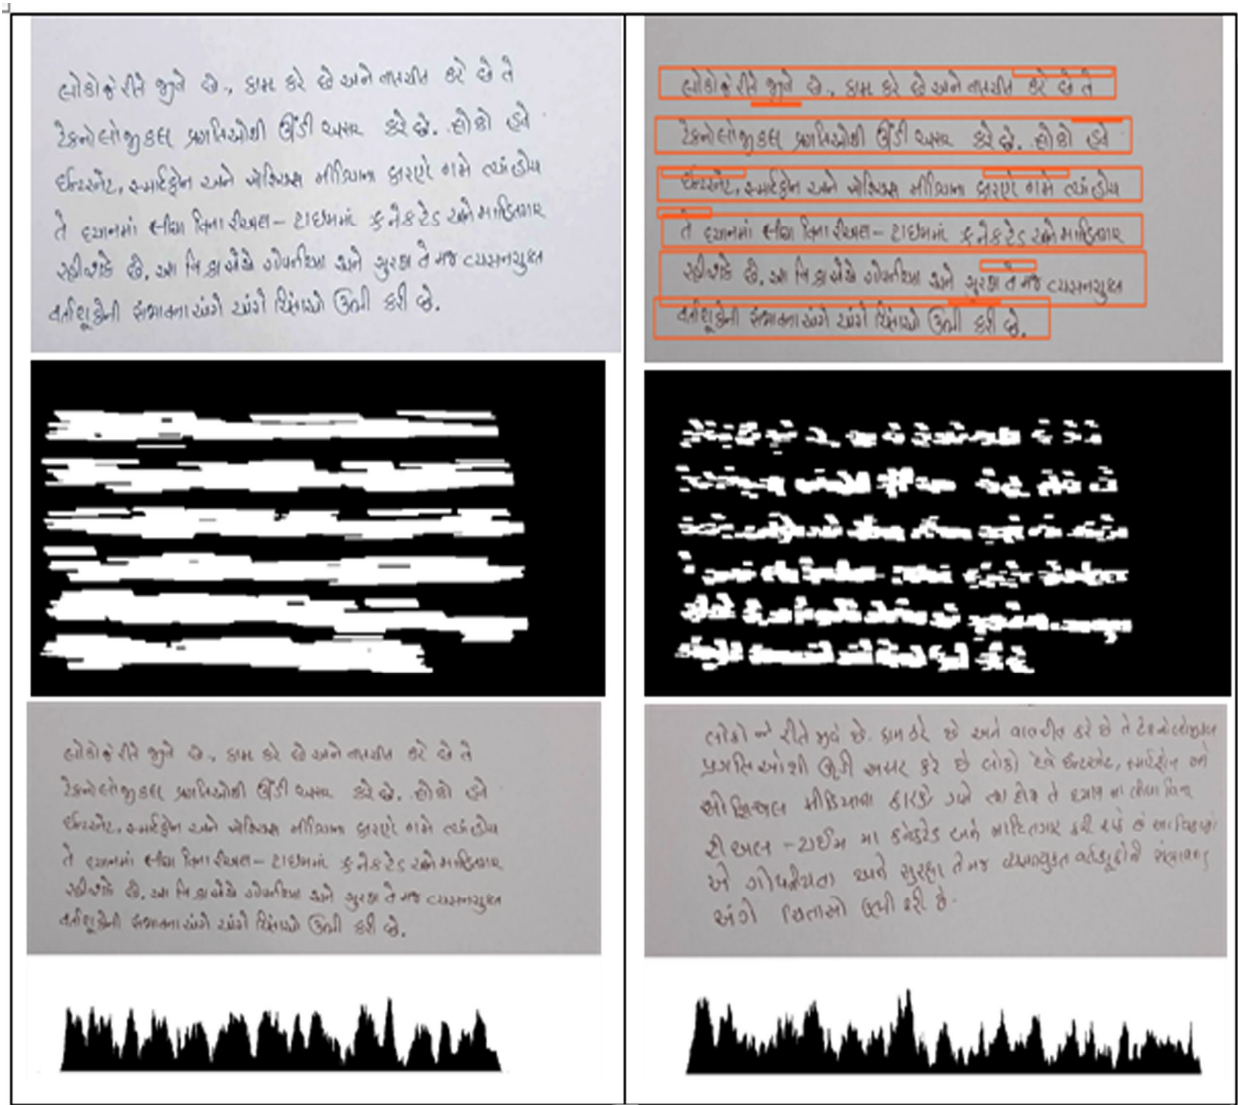 લોકો જે રીતે જીવે છે., કામ કરે છે અને વાતચીત કરે છે તે
ટેકનોલોજીકલ પ્રગતિઓથી ઊંડી અસર કરે છે. લોકો હવે
ઈન્ટરનેટ, સ્માર્ટફોન અને સોશિયલ મીડિયાના કારણે ગમે ત્યાં હોય
તે ધ્યાનમાં લીધા વિના રીઅલ- ટાઇમમાં કનેકટેડ અને માહિતગાર
રહી શકે છે. આ વિકાસોએ ગોપનીયતા અને સુરક્ષા તેમજ વ્યસનયુક્ત
વર્તણૂકોની સંભાવના અંગે અંગે ચિંતાઓ ઉભી કરી છે.
લોકો જે રીતે જીવે છે., કામ કરે છે અને વાતચીત કરે છે તે
ટેકનોલોજીકલ પ્રગતિઓથી ઊંડી અસર કરે છે. લોકો હવે
ઈન્ટરનેટ, સ્માર્ટફોન અને સોશિયલ મીડિયાના કારણે ગમે ત્યાં હોય
તે ધ્યાનમાં લીધા વિના રીઅલ- ટાઇમમાં કનેકટેડ અને માહિતગાર
રહી શકે છે. આ વિકાસોએ ગોપનીયતા અને સુરક્ષા તેમજ વ્યસનયુક્ત
વર્તણૂકોની સંભાવના અંગે અંગે ચિંતાઓ ઉભી કરી છે.
લોકો જે રીતે જીવે છે., કામ કરે છે અને વાતચીત કરે છે તે
ટેકનોલોજીકલ પ્રગતિઓથી ઊંડી અસર કરે છે. લોકો હવે
ઈન્ટરનેટ, સ્માર્ટફોન અને સોશિયલ મીડિયાના કારણે ગમે ત્યાં હોય
તે ધ્યાનમાં લીધા વિના રીઅલ- ટાઇમમાં કનેકટેડ અને માહિતગાર
રહી શકે છે. આ વિકાસોએ ગોપનીયતા અને સુરક્ષા તેમજ વ્યસનયુક્ત
વર્તણૂકોની સંભાવના અંગે અંગે ચિંતાઓ ઉભી કરી છે.
લોકો જે રીતે જીવે છે. કામ કરે છે અને વાતચીત કરે છે તે ટેકનોલોજીકલ
પ્રગતિઓથી ઊંડી અસર કરે છે લોકો હવે ઈન્ટરનેટ, સ્માર્ટફોન અને
સોશિયલ મીડિયાના કારણે ગમે ત્યાં હોય તે ધ્યાન ના લીધા વિના
રીઅલ - ટાઈમ મા કનેકટેડ અને માહિતગાર રહી શકે છે આ
એ ગોપનીયતા અને સુરક્ષા તેમજ વ્યસનયુક્ત વર્તણૂકોની સંભાવના
અંગે ચિંતાઓ ઉભી કરી છે.